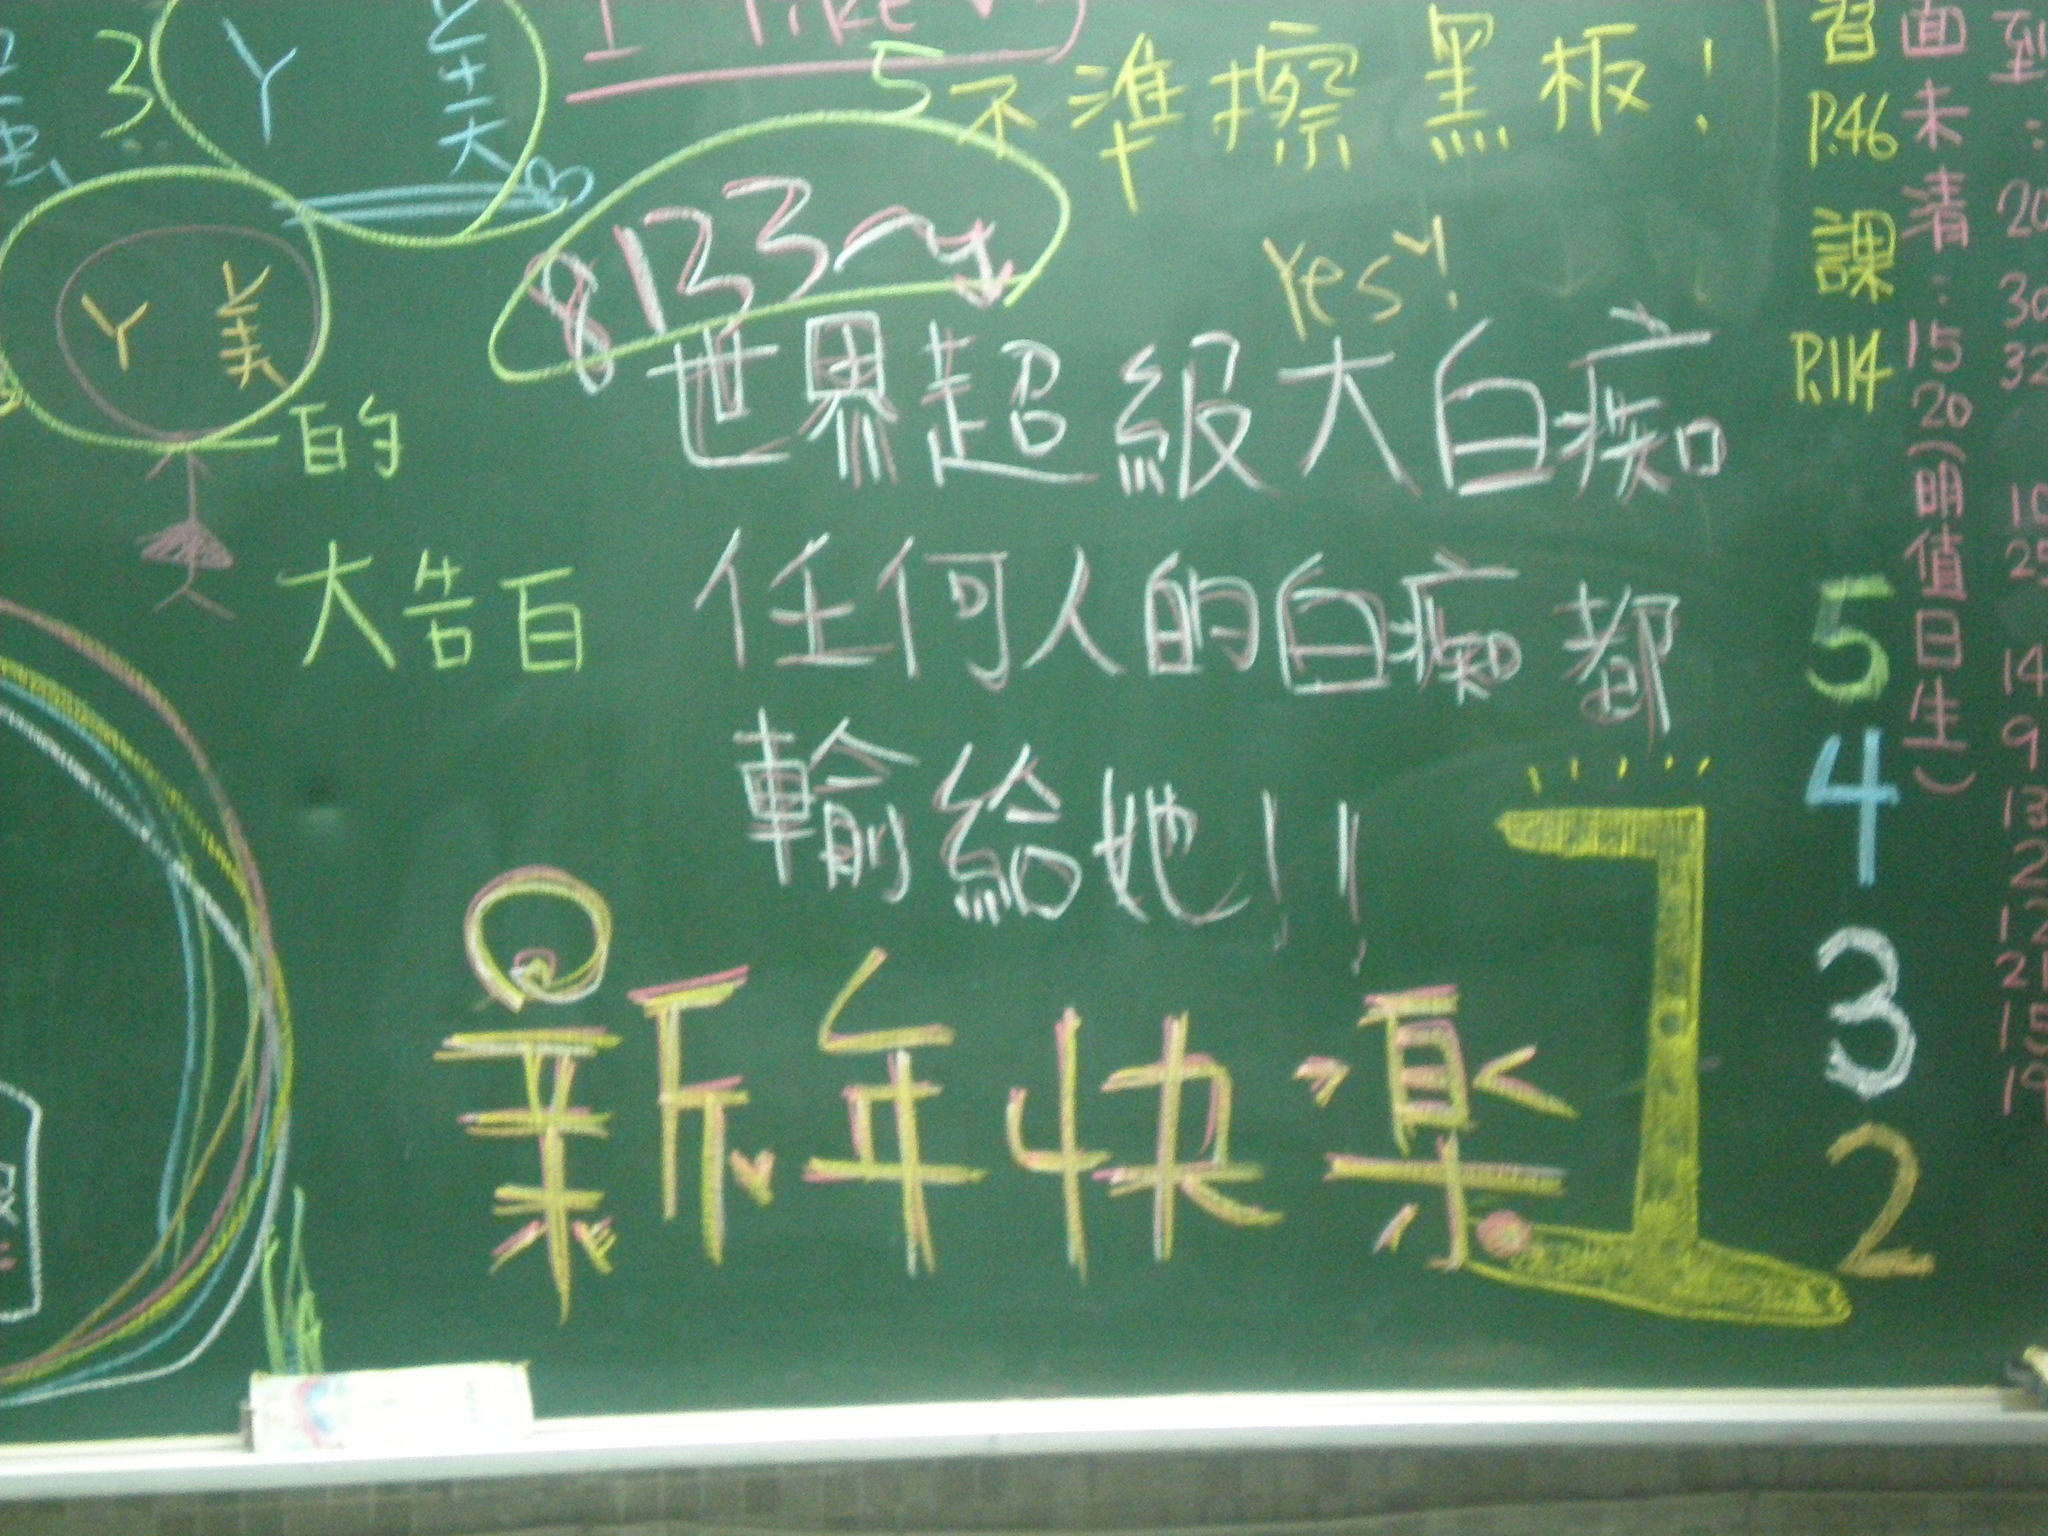 I like
3 Y 美
5不準擦黑板！
8133~
Yes!
Y 美
百的
大告百
世界超級大白痴
任何人的白痴都
輸給她！！
新年快樂
1
習
P.46
課
P.114
5
4
3
2
面未清：15
20）明值日生（
到：
20
30
32
10
25
14
9
13
2
12
21
15
19